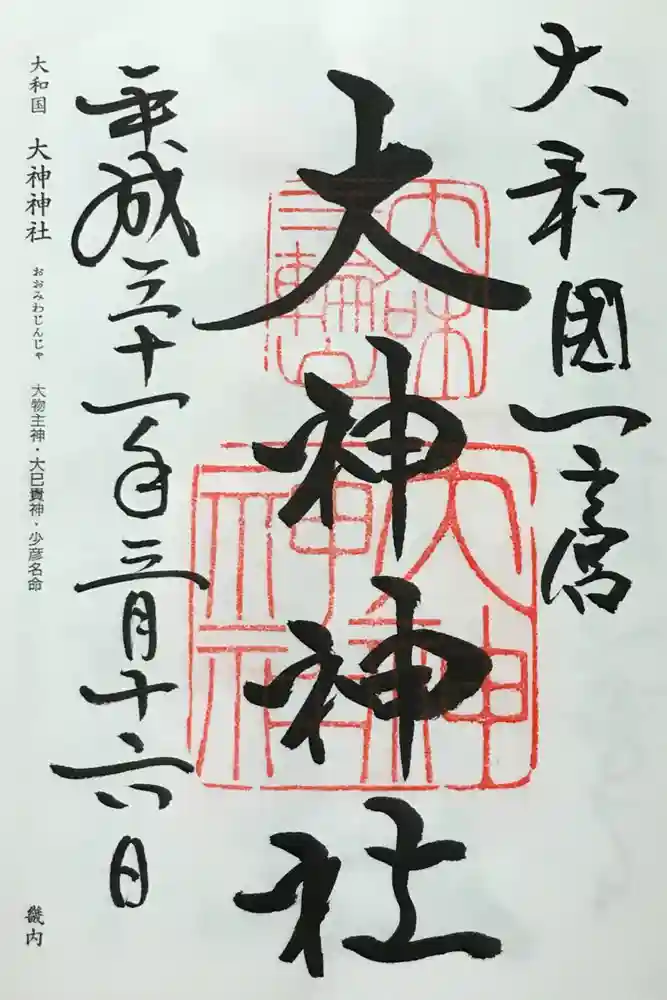 大和國一宮
大神神社
平成三十一年三月十六日
大和国 大神神社 おおみわじんじゃ 大物主神・大巳貴神・少彦名命
畿内
三輪
大神神社